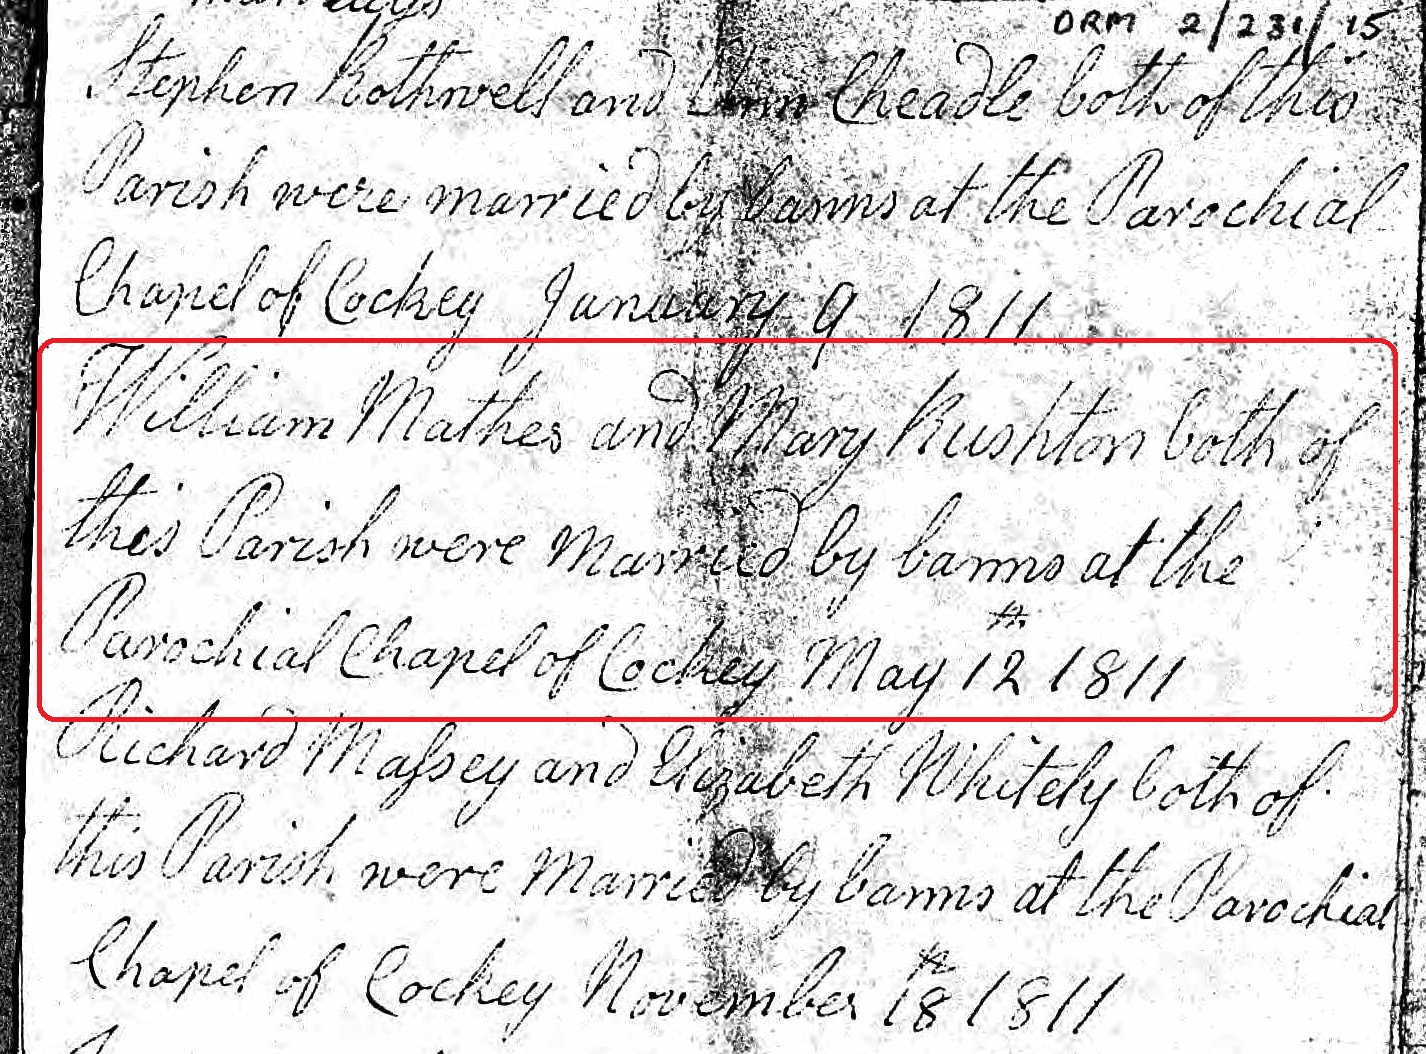 Marriages
DRM 2/231/15
Stephen Rothwell and Ann Cheadle both of this
Parish were married by banns at the Parochial
Chapel of Cockey January 9 1811
William Mather and Mary Rushton both of
this Parish were Married by banns at the
Parochial Chapel of Cockey May 12th 1811
Richard Maſsey and Elizabeth Whitely both of
this Parish were Married by banns at the Parochial
Chapel of Cockey November 18th 1811